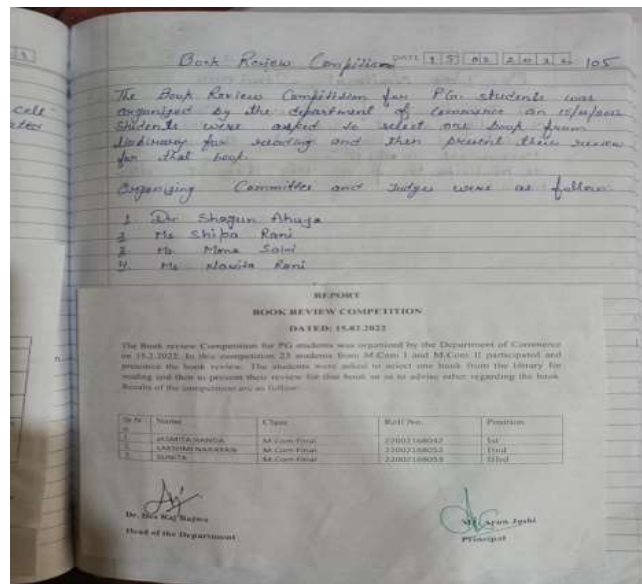 Cell
Book Review Compitition DATE 15 02 2022 105
The Book Review Compitition for P.G. students was
organized by the department of Commerce on 15/02/2022
Students were asked to select one book from
for reading and then present their review
for that book.
Organizing Committee and Judges were as follow
1. Dr Shagun Ahuja
2. Ms Shilpa Rani
3. Ms Mona Saini
4. Ms Navita Rani
REPORT
BOOK REVIEW COMPETITION
DATED: 15.02.2022
The Book review Competition for PG students was organized by the Department of Commerce
on 15.2.2022. In this competition 23 students from M.Com I and M.Com II participated and
presented the book review. The students were asked to select one book from the library for
reading and then to present their review for that book so as to advise other regarding the book.
Results of the competition are as follow:
Sr N Name Class Roll No. Position
1. JASMITA NANDA M.Com Final 22002168042 1st
2. LAKSHMI NARAYAN M.Com Final 22002168052 IInd
3. SUNITA M.Com Final 22002168053 IIIrd
Dr. Des Raj Bajwa
Head of the Department
Arun Joshi
Principal